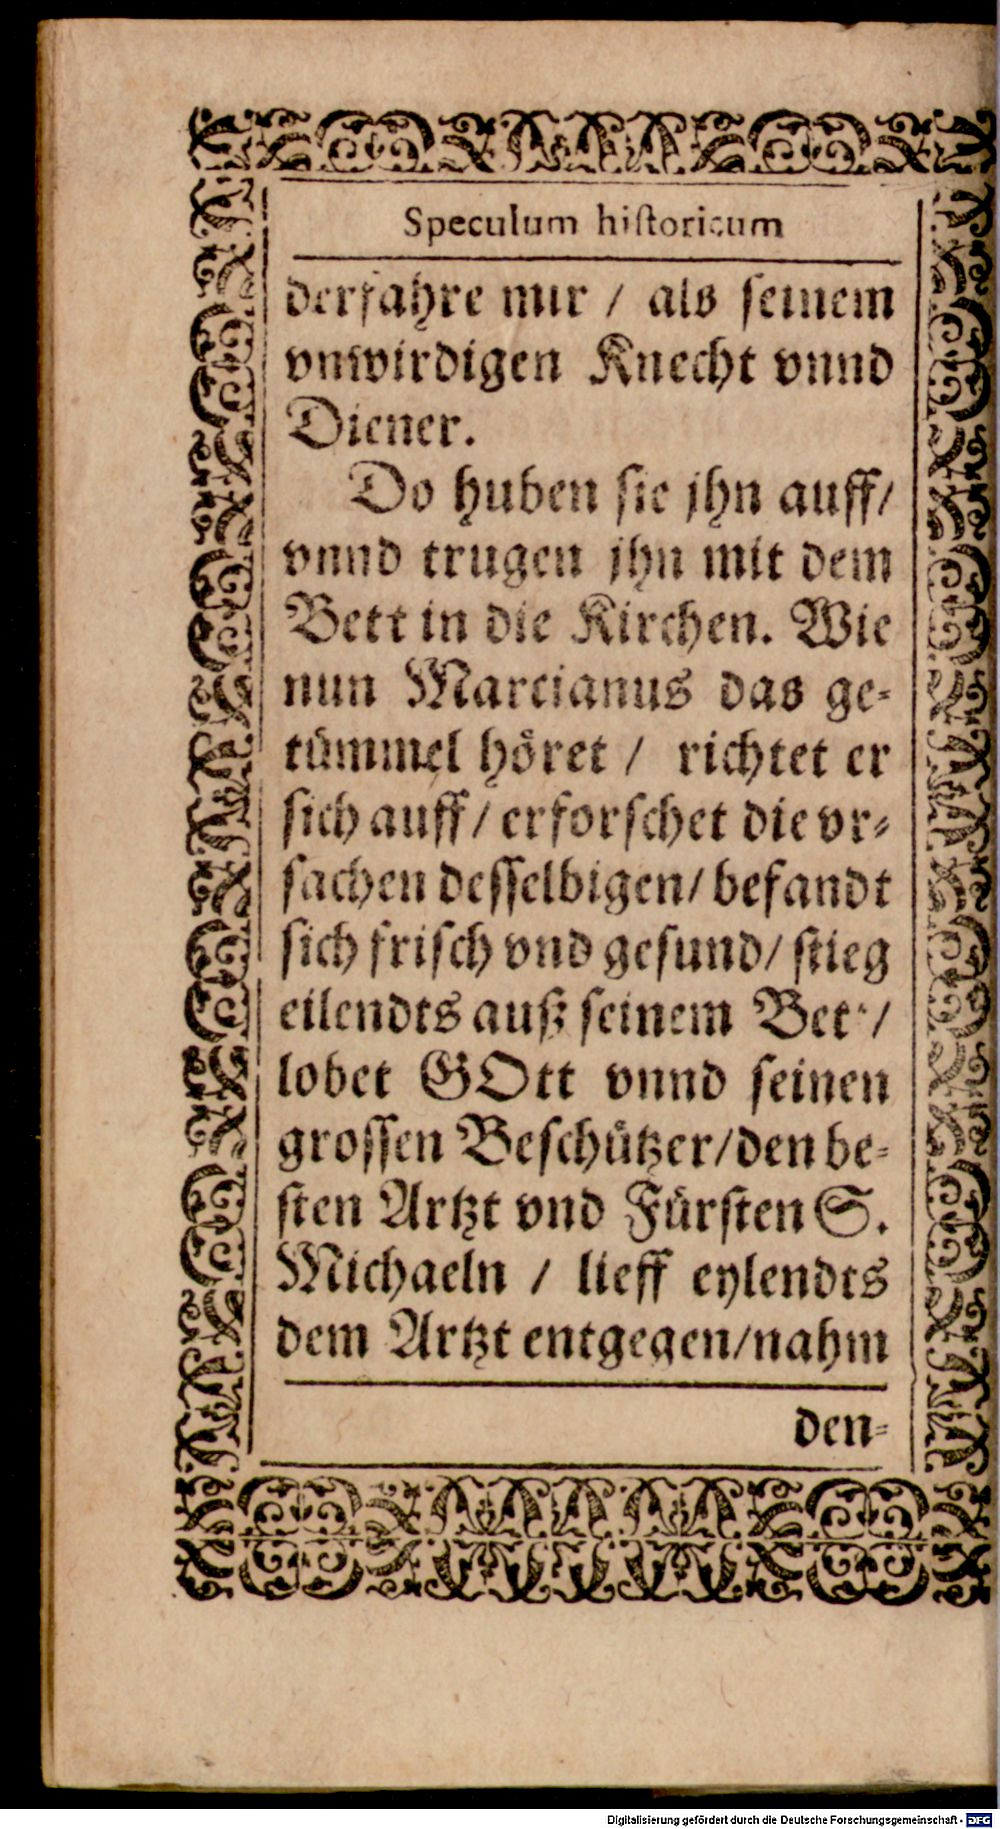 Speculum hiſtoricum
derfahre mir / als ſeinem
vnwirdigen Knecht vnnd
Diener.
Do huben ſie jhn auff/
vnnd trugen jhn mit dem
Bett in die Kirchen. Wie
nun Marcianus das ge-
tümmel höret / richtet er
ſich auff/ erforſchet die vr-
ſachen deſſelbigen/ befandt
ſich friſch vnd geſund/ ſtieg
eilendts auß ſeinem Bett/
lobet GOtt vnnd ſeinen
groſſen Beſchützer/den be-
ſten Artzt vnd Fürſten S.
Michaeln / lieff eylendts
dem Artzt entgegen/nahm
den-
Digitalisierung gefördert durch die Deutsche Forschungsgemeinschaft - DFG